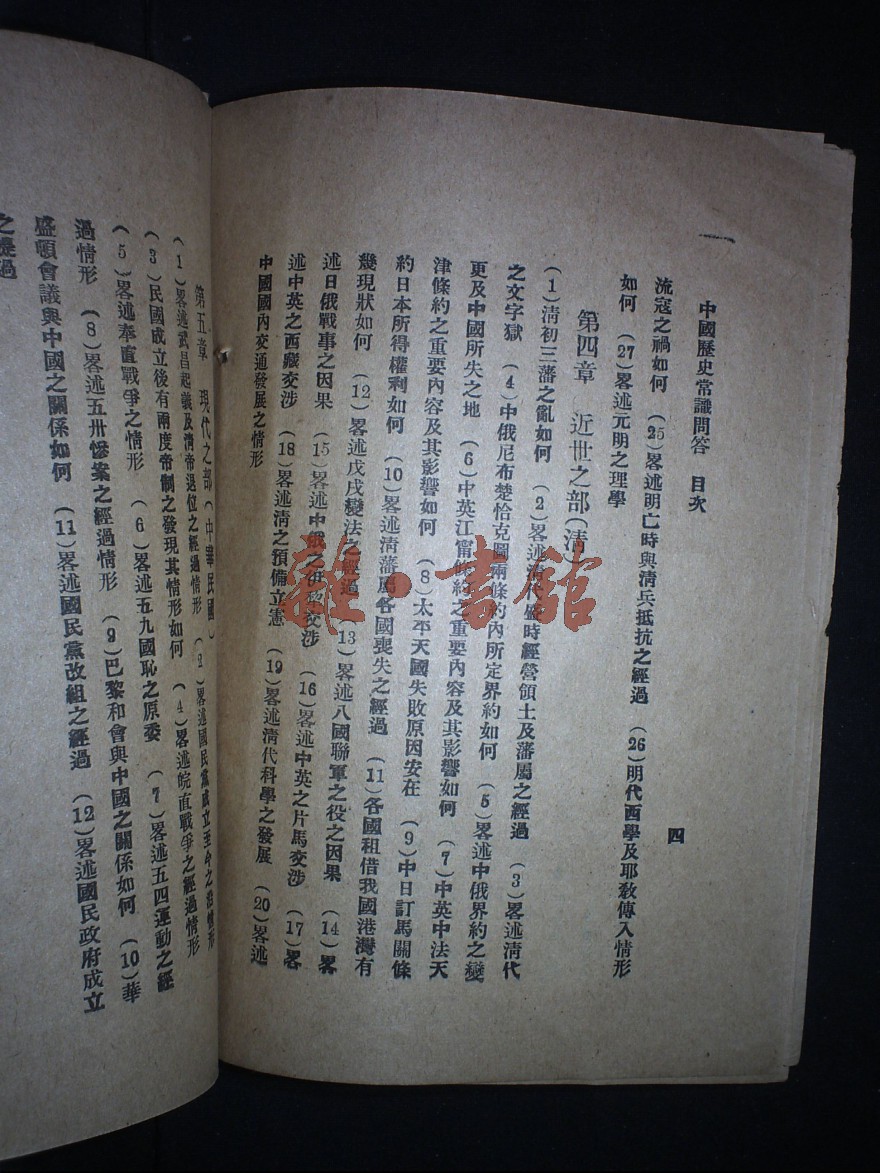 中國歷史常識問答 目次
四
流寇之禍如何 (25)畧述明亡時與清兵抵抗之經過 (26)明代西學及耶敎傳入情形
如何 (27)畧述元明之理學
第四章 近世之部(清)
(1)清初三藩之亂如何 (2)畧述清代盛時經營領土及藩屬之經過 (3)畧述清代
之文字獄 (4)中俄尼布楚恰克圖兩條約內所定界約如何 (5)畧述中俄界約之變
更及中國所失之地 (6)中英江甯條約之重要內容及其影響如何 (7)中英中法天
津條約之重要內容及其影響如何 (8)太平天國失敗原因安在 (9)中日訂馬關條
約日本所得權利如何 (10)畧述清藩屬各國喪失之經過 (11)各國租借我國港灣有
幾現狀如何 (12)畧述戊戌變法之經過 (13)畧述八國聯軍之役之因果 (14)畧
述日俄戰事之因果 (15)畧述中俄之伊犂交涉 (16)畧述中英之片馬交涉 (17)畧
述中英之西藏交涉 (18)畧述清之預備立憲 (19)畧述清代科學之發展 (20)畧述
中國國內交通發展之情形
第五章 現代之部(中華民國)
(1)畧述武昌起義及清帝退位之經過情形 (2)畧述國民黨成立至今之沿革情形
(3)民國成立後有兩度帝制之發現其情形如何 (4)畧述皖直戰爭之經過情形
(5)畧述奉直戰爭之情形 (6)畧述五九國恥之原委 (7)畧述五四運動之經
過情形 (8)畧述五卅慘案之經過情形 (9)巴黎和會與中國之關係如何 (10)華
盛頓會議與中國之關係如何 (11)畧述國民黨改組之經過 (12)畧述國民政府成立
之經過
雜·書館